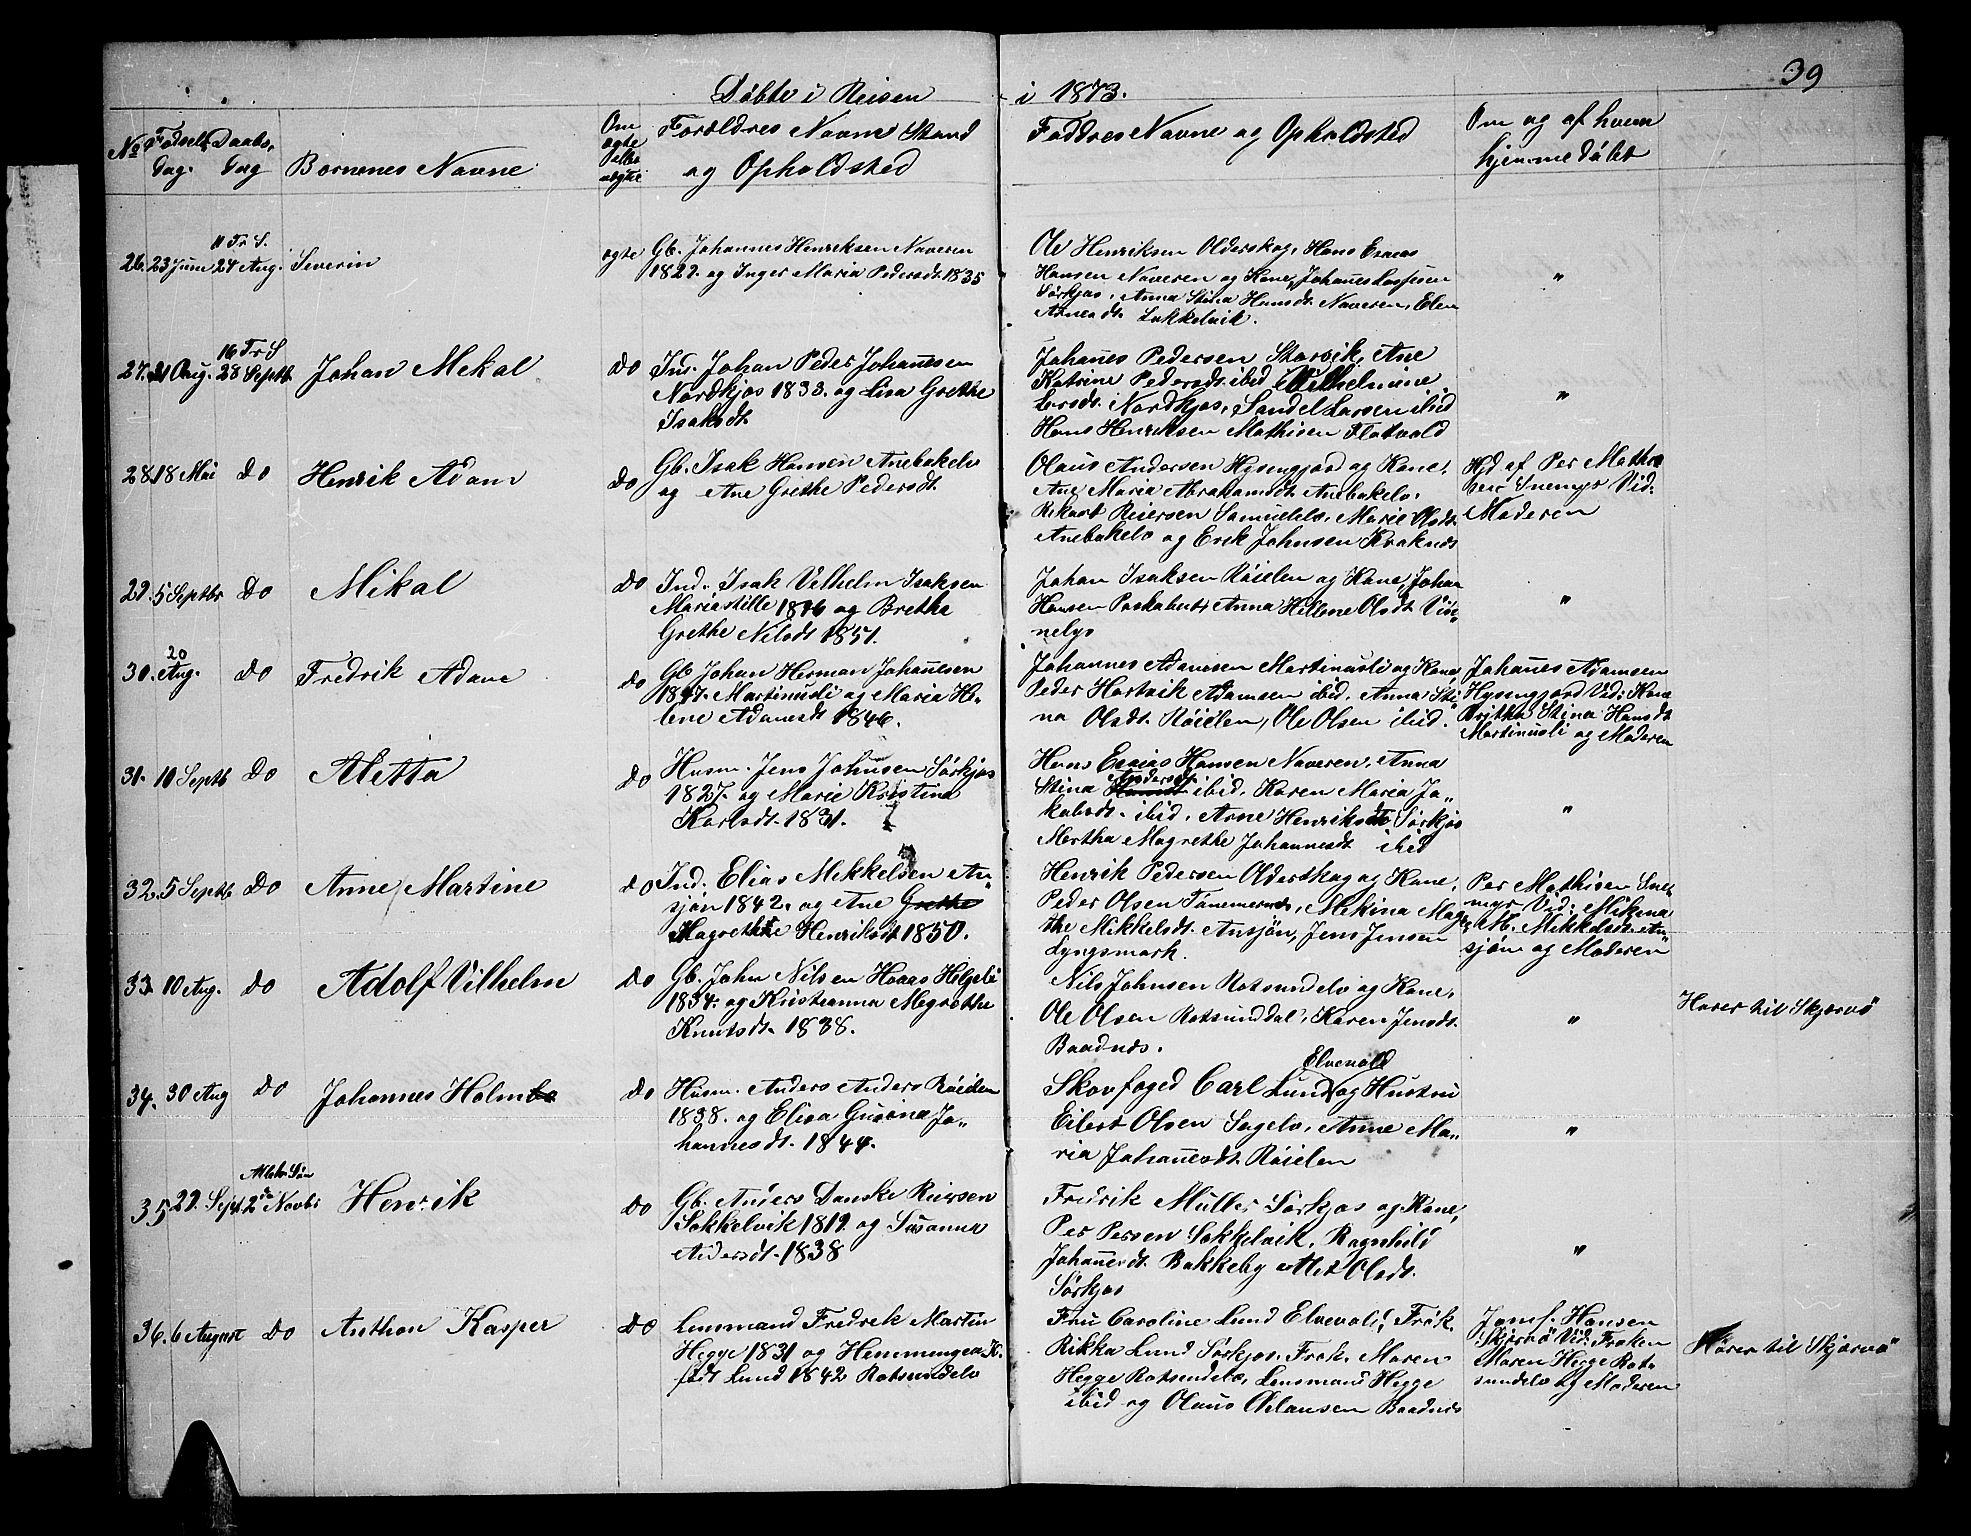 39
Döbte i Reisen i 1873.
No Fødsels Dag. Daabs Dag Børnenes Navne Om ægte eller uægte Forældres Navne Stand og Opholdsted Faddres Navne og Opholdsted Om og af hvem hjemmedöbt
26. 23 Juni 11 Tr. S. 24 Aug. Severin ægte
Gb. Johannes Henriksen Naveren
1822. og Inger Maria Pedersdt. 1835
Ole Henriksen Olderskog, Hans Esaias
Hansen Naveren og Kone, Johanes
Sörkjos, Anna Stina Hansdt. Naveren, Elen
Arnesdt. Lokkelvik.
"
27. 21 Aug. 16 Tr S 28 Septb. Johan Mekal Do
Ind. Johan Peder Johannesen
Nordkjos 1833. og Lisa Grethe
Isaksdt.
Johanes Pedersen Storvik, Ane
Katrine Pedersdt. ibid Vilhelmine
Larsdt. Nordkjos, Sandel Larsen ibid
Hans Henriksen Mathisen Flatvold
"
28. 18 Mai Do Henrik Adam Do
Gb. Isak Hansen Anebakelv
og Ane Grethe Pedersdt.
Olaus Andersen Hysingjord og Kone,
Ane Maria Abrahamsdt. Anebakelv.
Rikart Reiersen Samuelelv, Marie Olsdt.
Anebakelv og Erik Johnsen Kraknes
Hjd. af Per Mathi
sen Snemyr Vid:
Moderen
29. 5 Septbr Do Mikal Do
Ind. Isak Vilhelm Isaksen
Mariestille 1846 og Brethe
Grethe Nilsdt. 1851.
Johan Isaksen Röielen og Kone, Johan
Hansen Paskabut, Anna Hellene Olsdt. Vin
nelys
"
30. 20 Aug. Do Fredrik Adam Do
Gb Johan Herman Johannesen
1847. Martinusli og Maria He-
lene Adamsdt. 1846.
Johannes Adamsen Martinusli og Kone,
Peder Hartvik Adamsen ibid. Anna Sti
na Olsdt. Röielen, Ole Olsen ibid.
Johanes Adamsen
Hysingjord Vid: Kone
Britha Stina Hansdt
Martinusli og Moderen
31. 10 Septb Do Aletta Do
Husm. Jens Johnsen Sörkjos
1827. og Marie Kristina
Karlsdt. 1831.
Hans Esaias Hansen Naveren, Anna
Stina Andersdt. ibid. Karen Maria Ja„
kobsdt. ibid. Arne Henriksen Sörkjos
Martha Magrethe Johannesdt ibid
"
32. 5 Septb Do Anne Martine Do
Ind. Elias Mekkelsen An„
sjön 1842. og Ane Grethe
Magrethe Henriksdt 1850.
Henrik Pedersen Olderskog og Kone,
Peder Olsen Tömmernes, Mekina Magre
the Mikkelsdt. Ansjön, Jens Jensen
Lyngsmark.
Per Mathisen Sne-
myr Vid: Mikina
M. Mikkelsdt. An„
sjön og Moderen
33. 10 Aug. Do Adolf Vilhelm Do
Gb. John Nilsen Haaes Helgeli
1834. og Kristianna Megrethe
Knutsdt. 1838.
Nils Johnsen Rotsundelv og Kone,
Ole Olsen Rotsunddal, Karen Jensdt.
Baadnes.
"
Hører til Skjærvö
34. 30 Aug Do Johannes Holm Do
Husm. Anders Anders Röielen
1838. og Elisa Gurina Jo„
hannesdt. 1844.
Skovfoged Carl Lund Elvevold og Hustru
Eilert Olsen Sagelv, Anne Ma„
ria Johanesdt. Röielen
"
35. 29. Sept Alleh. Sön 2den Novbr Henrik Do
Gb. Anders Danske Reiersen
Sokkelvik 1819. og Susanna
Andersdt. 1838
Fredrik Müller Sörkjos og Kone,
Per Persen Sokkelvik, Ragnhild
Johanesdt. Bakkeby Olsdt.
Sörkjos
"
36. 6 August Do Anthon Kasper Do
Lensmand Fredrek Martin
Hegge 1831 og Hemmingea K.
födt Lund 1842 Rotsundelv
Fru Caroline Lund Elvevold, Frök.
Rikka Lund Sörkjos, Frök. Maren
Hegge Rotsundelv, Lensmand Hegge
ibid og Olaus Baadnes
Jomf. Hansen
Skjærvö Vid. Fröken
Maren Hegge Rot-
sundelv og Moderen
Hører til Skjærvö